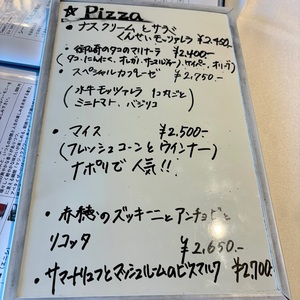 ☆ Pizza
・ナスクリームとサラベ
くんせいモッツァレラ ¥2,450-
・御前崎のタコのマリナーラ ¥2,400-
(タコ、にんにく、オレガノ、ケッパー、オリーブ)
・スペシャルカプレーゼ ¥2,750-
(水牛モッツァレラ 1コ丸ごと)
ミニトマト、バジリコ
・マイス ¥2,500-
(フレッシュコーンとウインナー)
ナポリで人気!!
・赤穂のズッキーニとアンチョビと
リコッタ ¥2,650-
・サマートリュフとマッシュルームのビスマルク ¥2,700-